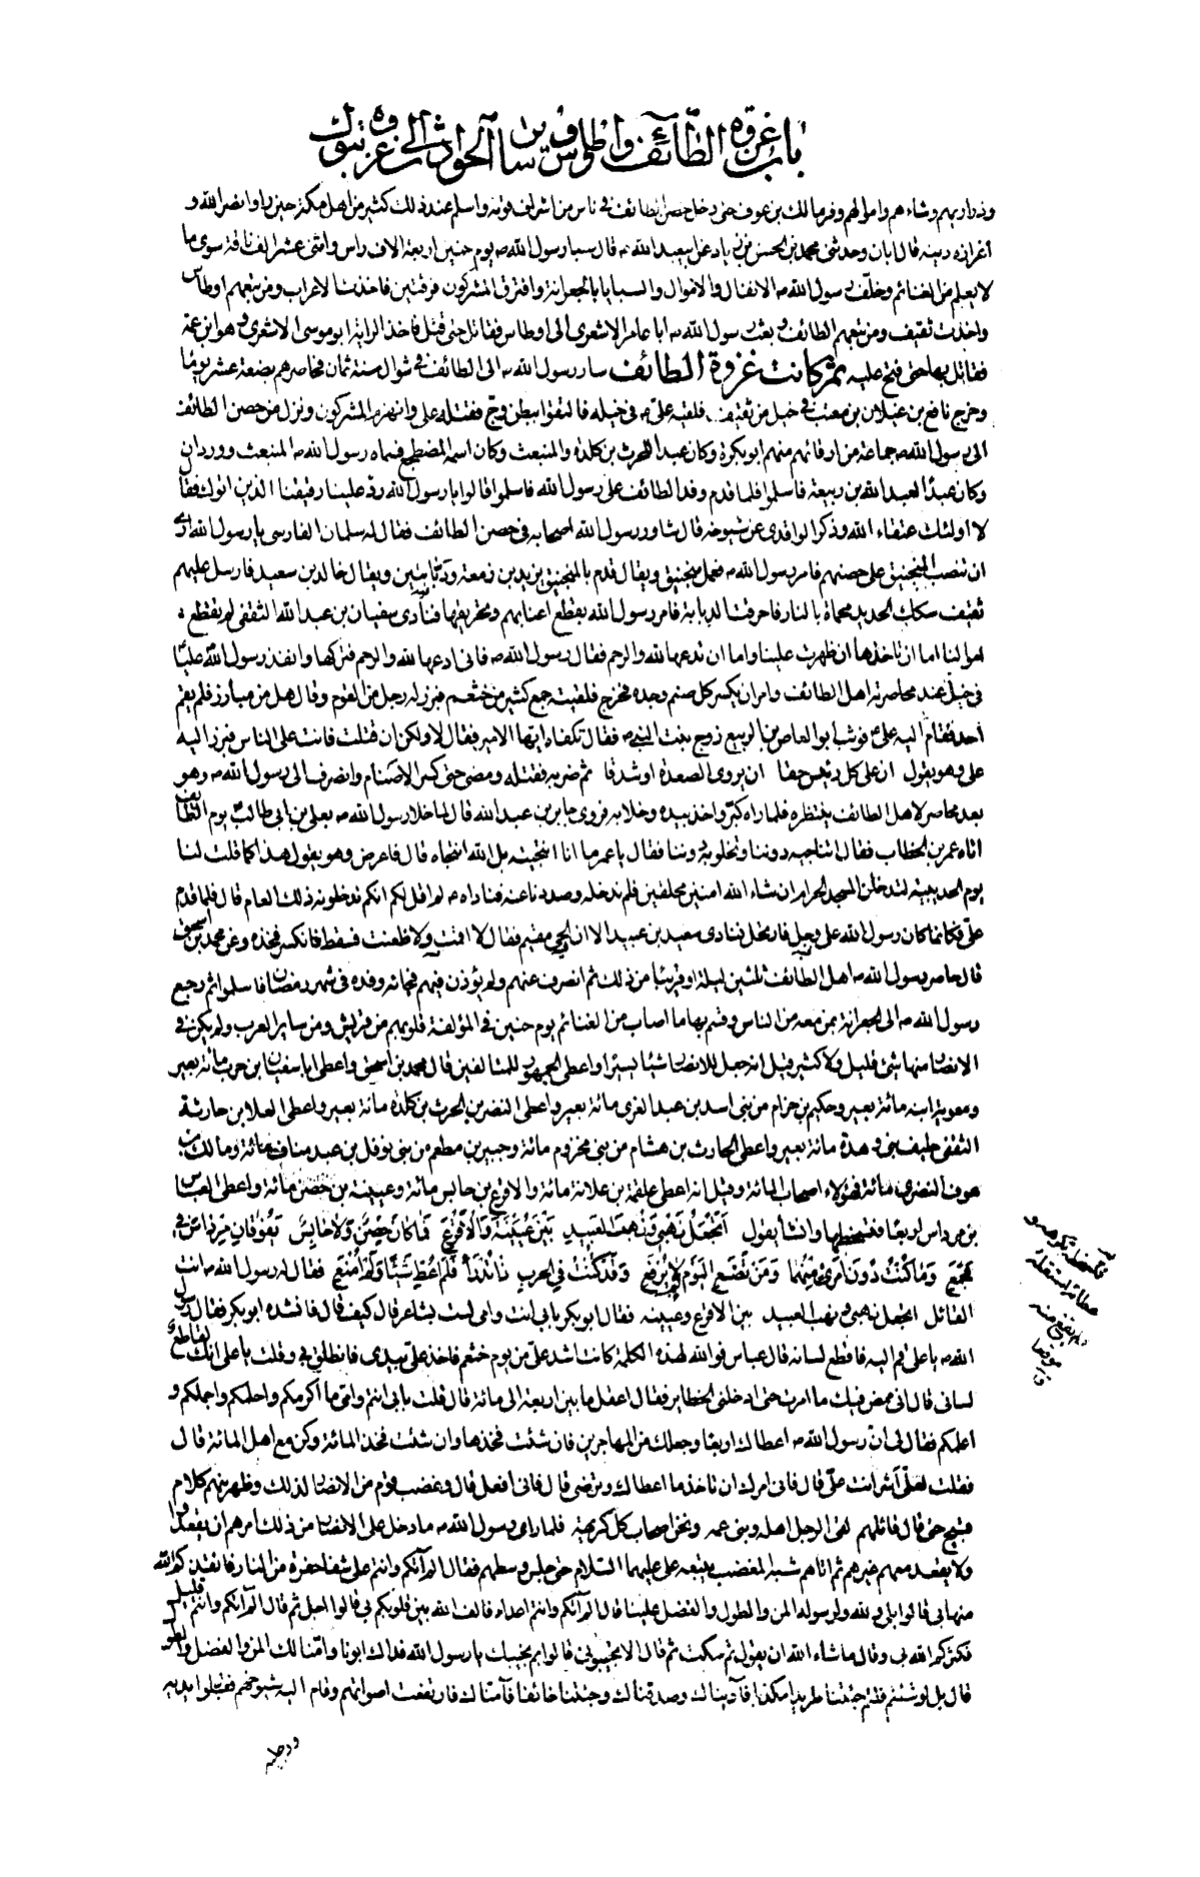 باب غزوة الطائف واوطاس وسائر الحوادث الى غزوة تبوك
وذراريهم وشاءهم واموالهم وفر مالك بن عوف حتى دخل حصن الطائف فى ناس من اشراف قومه واسلم عند ذلك كثير من اهل مكة حين راوا نصر الله و
اعزاز دينه قال ابان وحدثنى محمد بن الحسن بن زياد عن ابيعبد الله ع قال سبا رسول الله ص يوم حنين اربعة الاف راس واثنى عشر الف ناقة سوى ما
لا يعلم من الغنائم وخلف رسول الله ص الانفال والاموال والسبايا بالجعرانة وافترق المشركون فرقتين فاخذت الاعراب ومن تبعهم اوطاس
واخذت ثقيف ومن تبعهم الطائف وبعث رسول الله ص ابا عامر الاشعرى الى اوطاس فقاتل حتى قتل فاخذ الراية ابو موسى الاشعرى وهو ابن عمه
فقاتل بها حتى فتح عليه ثم كانت غزوة الطائف سار رسول الله ص الى الطائف فى شوال سنة ثمان فحاصرهم بضعة عشر يوما
وخرج نافع بن غيلان بن معتب فى خيل من ثقيف فلقيه على ع فى خيله فالتقوا ببطن وج فقتله على وانهزم المشركون ونزل من حصن الطائف
الى رسول الله ص جماعة من ارقائهم منهم ابو بكرة وكان عبدا للحرث بن كلدة والمنبعث وكان اسمه المضطجع فسماه رسول الله ص المنبعث ووردان
وكان عبدا لعبد الله بن ربيعة فاسلموا فلما قدم وفد الطائف على رسول الله فاسلموا قالوا يا رسول الله رد علينا رقيقنا الذين اتوك فقال
لا اولئك عتقاء الله وذكر الواقدى عن شيوخه قال شاور رسول الله اصحابه فى حصن الطائف فقال له سلمان الفارسى يا رسول الله ارى
ان تنصب المنجنيق على حصنهم فامر رسول الله ص فعمل منجنيق ويقال قدم بالمنجنيق يزيد بن زمعة ودبابتين ويقال خالد بن سعيد فارسل عليهم
ثقيف سكك الحديد محماة بالنار فاحرقت الدبابة فامر رسول الله بقطع اعنابهم وتحريقها فنادى سفيان بن عبد الله الثقفى لم تقطع
اموالنا اما ان تاخذها ان ظهرت علينا واما ان تدعها لله والرحم فقال رسول الله ص فانى ادعها لله والرحم فتركها وانفذ رسول الله عليا
فى خيل عند محاصرته اهل الطائف وامر ان يكسر كل صنم وجده فخرج فلقيه جمع كثير من خثعم فبرز له رجل من القوم وقال هل من مبارز فلم يقم
احد فقام اليه على ع فوثب ابو العاص بن الربيع زوج بنت النبى ص فقال تكفاه ايها الامير فقال لا ولكن ان قتلت فانت على الناس فبرز اليه
على وهو يقول ان على كل رئيس حقا ان يروى الصعدة او تندقا ثم ضربه فقتله ومضى حتى كسر الاصنام وانصرف الى رسول الله ص وهو
بعد محاصر لاهل الطائف ينتظره فلما راه كبر واخذ بيده وخلا به فروى جابر بن عبد الله قال لما خلا رسول الله ص بعلى بن ابى طالب يوم الطائف
اتاه عمر بن الخطاب فقال اتناجيه دوننا وتخلو به دوننا فقال يا عمر ما انا انتجيته بل الله انتجاه قال فاعرض وهو يقول هذا كما قلت لنا
يوم الحديبية لتدخلن المسجد الحرام ان شاء الله امنين محلقين فلم ندخله وصددنا عنه فناداه ص لم اقل لكم انكم تدخلونه ذلك العام قال فلما قدم
على فكانما كان رسول الله على وجل فارتحل فنادى سعيد بن عبيد الا ان الحى مقيم فقال لا اقمت ولا ظعنت فسقط فانكسر فخذه وعن محمد بن اسحق
قال حاصر رسول الله ص اهل الطائف ثلثين ليلة او قريبا من ذلك ثم انصرف عنهم ولم يؤذن فيهم فجائه وفده فى شهر رمضان فاسلموا ثم رجع
رسول الله ص الى الجعرانة بمن معه من الناس وقسم بها ما اصاب من الغنائم يوم حنين فى المؤلفة قلوبهم من قريش ومن ساير العرب ولم يكن فى
الانصار منها شئ قليل ولا كثير وقيل انه جعل للانصار شيئا يسيرا واعطى الجمهور للمتالفين قال محمد بن اسحق واعطى ابا سفيان بن حرب مائة بعير
ومعوية ابنه مائة بعير وحكيم بن حزام من بنى اسد بن عبد العزى مائة بعير واعطى النضر بن الحرث بن كلدة مائة بعير واعطى العلا بن حارثة
الثقفى حليف بنى زهرة مائة بعير واعطى الحارث بن هشام من بنى مخزوم مائة وجبير بن مطعم من بنى نوفل بن عبد مناف مائة ومالك بن
عوف النضرى مائة فهؤلاء اصحاب المائة وقيل انه اعطى علقمة بن علاثة مائة والاقرع بن حابس مائة وعيينة بن حصن مائة واعطى العباس
بن مرداس اربعا فتسخطها وانشأ يقول اَتَجْعَلُ نَهْبى وَنَهْبَ العَبيدِ بَيْنَ عُيَيْنَةَ وَالْاَقْرَعِ فَما كانَ حِصْنٌ وَلا حابِسٌ يَفُوقانِ مِرْداسَ فى
مَجْمَعٍ وَما كُنْتُ دُونَ امْرئٍ مِنْهُما وَمَنْ تَضَعِ الْيَوْمَ لا يُرْفَعِ وَقَدْ كُنْتُ فِى الْحَرْبِ ذا تُدْرَأٍ فَلَمْ اُعْطَ شَيْئًا وَلَمْ اُمْنَعِ فقال له رسول الله ص انت
القائل اتجعل نهبى ونهب العبيد بين الاقرع وعيينه فقال ابو بكر بابى انت وامى لست بشاعر قال كيف قال فانشده ابو بكر فقال رسول
الله ص يا على قم اليه فاقطع لسانه قال عباس فو الله لهذه الكلمة كانت اشد على من يوم خثعم فاخذ على بيدى فانطلق بى وقلت يا على انك لقاطع
لسانى قال انى ممض فيك ما امرت حتى ادخلنى الحظاير فقال اعقل ما بين اربعة الى مائة قال قلت بابى انتم وامى ما اكرمكم واحلمكم واجملكم و
اعلمكم فقال لى ان رسول الله ص اعطاك اربعا وجعلك من المهاجرين فان شئت فخذها وان شئت فخذ المائة وكن مع اهل المائة قال
فقلت لعلى اشر انت على قال فانى امرك ان تاخذ ما اعطاك وترضى قال فانى افعل قال وغضب قوم من الانصار لذلك وظهر منهم كلام
قبيح حتى قال قائلهم لقى الرجل اهله وبنى عمه ونحن اصحاب كل كريهة فلما راى رسول الله ص ما دخل على الانصار من ذلك امرهم ان يقعدوا
ولا يقعد معهم غيرهم ثم اتاهم شبه المغضب يتبعه على عليهما السلام حتى جلس وسطهم فقال الم آتكم وانتم على شفا حفرة من النار فانقذكم الله
منها بى قالوا بلى ولله ولرسوله المن والطول والفضل علينا قال الم آتكم وانتم اعداء فالف الله بين قلوبكم بى قالوا اجل ثم قال الم آتكم وانتم قليل
فكثركم الله بى وقال ما شاء الله ان يقول ثم سكت ثم قال الا تجيبونى قالوا بم نجيبك يا رسول الله فداك ابونا وامنا لك المن والفضل والطول
قال بل لو شئتم قلتم جئتنا طريدا مكذبا فآويناك وصدقناك وجئتنا خائفا فآمناك فارتفعت اصواتهم وقام اليه شيوخهم فقبلوا يديه
ورجليه